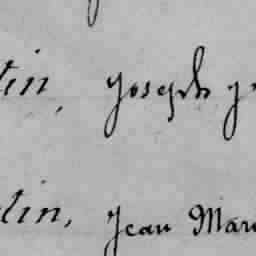 tin, joseph j
lin, jean Mari